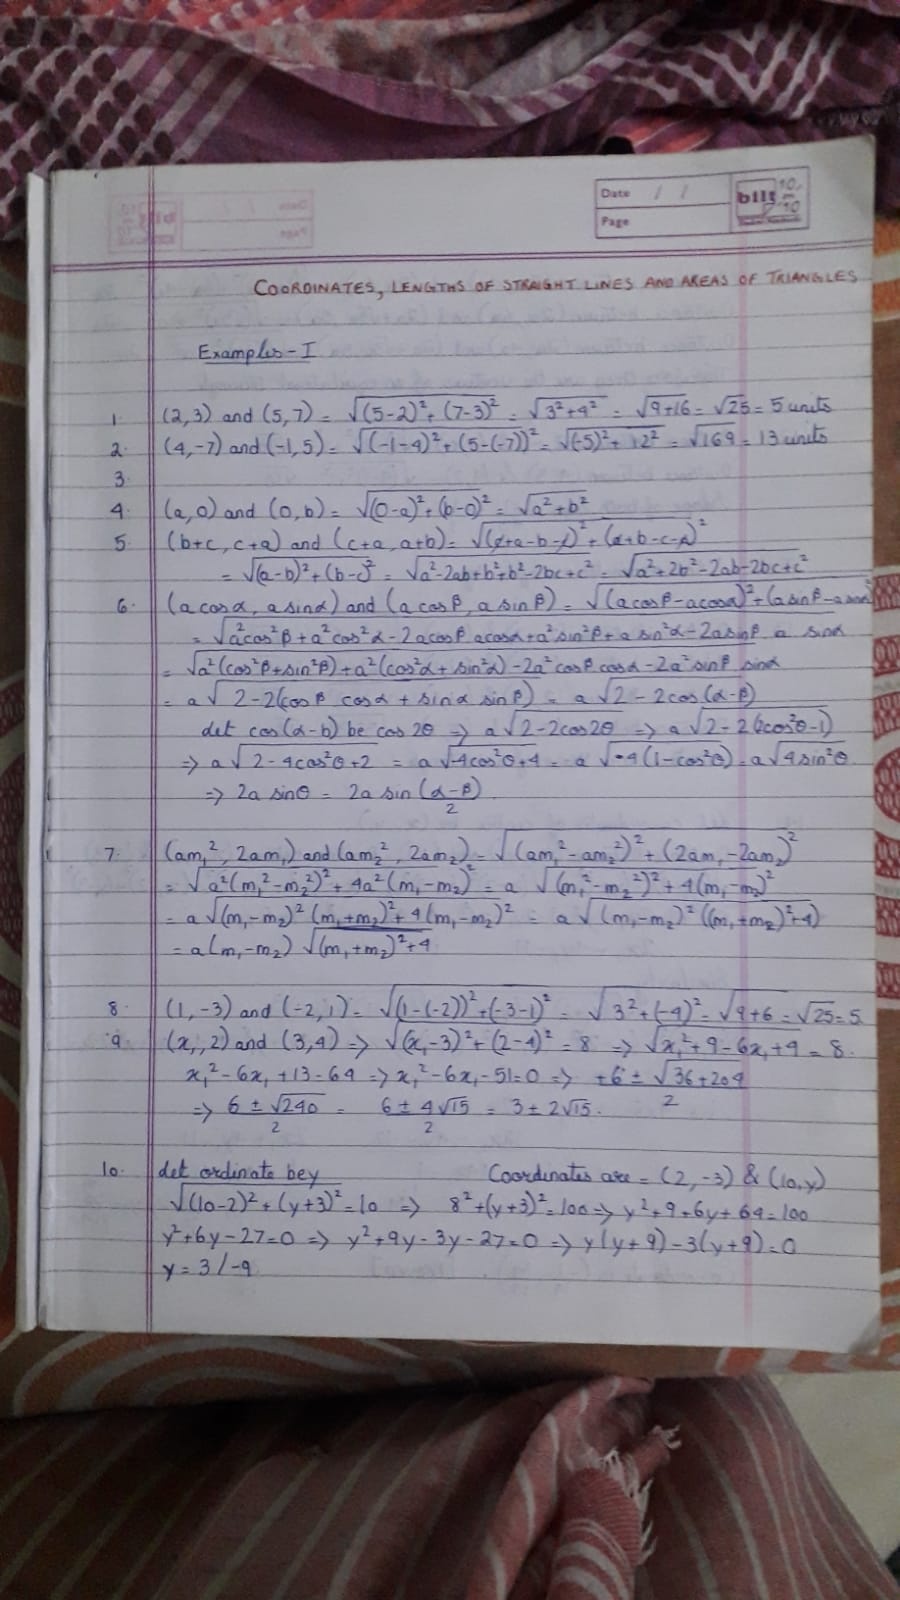 Date / /
Page
bilt
COORDINATES, LENGTHS OF STRAIGHT LINES AND AREAS OF TRIANGLES
Examples-I
1. (2,3) and (5,7) = √(5-2)²+(7-3)² = √3²+4² = √9+16 = √25 = 5 units
2. (4,-7) and (-1,5) = √(-1-4)²+(5-(-7))² = √(-5)²+12² = √169 = 13 units
3.
4. (a,0) and (0,b) = √(0-a)²+(b-0)² = √a²+b²
5. (b+c, c+a) and (c+a, a+b) = √(c+a-b-c)²+(a+b-c-a)²
= √(a-b)²+(b-c)² = √a²-2ab+b²+b²-2bc+c² = √a²+2b²-2ab-2bc+c²
6. (a cosα, a sinα) and (a cosβ, a sinβ) = √(a cosβ-a cosα)²+(a sinβ-a sinα)
= √a²cos²β+a²cos²α-2acosβ acosα+a²sin²β+a sin²α-2asinβ a sinα
= √a²(cos²β+sin²β)+a²(cos²α+sin²α)-2a²cosβ cosα-2a²sinβ sinα
= a√2-2(cosβ cosα+sinα sinβ) = a√2-2cos(α-β)
let cos(α-b) be cos 2θ => a√2-2cos2θ => a√2-2(2cos²θ-1)
=> a√2-4cos²θ+2 = a√-4cos²θ+4 = a√-4(1-cos²θ) = a√4sin²θ
=> 2a sinθ = 2a sin(α-β)/2
7. (am₁², 2am₁) and (am₂², 2am₂) = √(am₁²-am₂²)²+(2am₁-2am₂)²
= √a²(m₁²-m₂²)²+4a²(m₁-m₂)² = a√(m₁²-m₂²)²+4(m₁-m₂)²
= a√(m₁-m₂)²(m₁+m₂)²+4(m₁-m₂)² = a√(m₁-m₂)²((m₁+m₂)²+4)
= a(m₁-m₂)√(m₁+m₂)²+4
8. (1,-3) and (-2,1) = √(1-(-2))²+(-3-1)² = √3²+(-4)² = √9+6 = √25 = 5
9. (x₁,2) and (3,4) => √(x₁-3)²+(2-4)² = 8 => √x₁²+9-6x₁+4 = 8.
x₁²-6x₁+13-64 => x₁²-6x₁-51=0 => +6±√36+204/2
=> 6±√240/2 = 6±4√15/2 = 3±2√15.
10. let ordinate be y Coordinates are = (2,-3) & (10,y)
√(10-2)²+(y+3)² = 10 => 8²+(y+3)² = 100 => y²+9+6y+64=100
y²+6y-27=0 => y²+9y-3y-27=0 => y(y+9)-3(y+9)=0
y = 3/-9